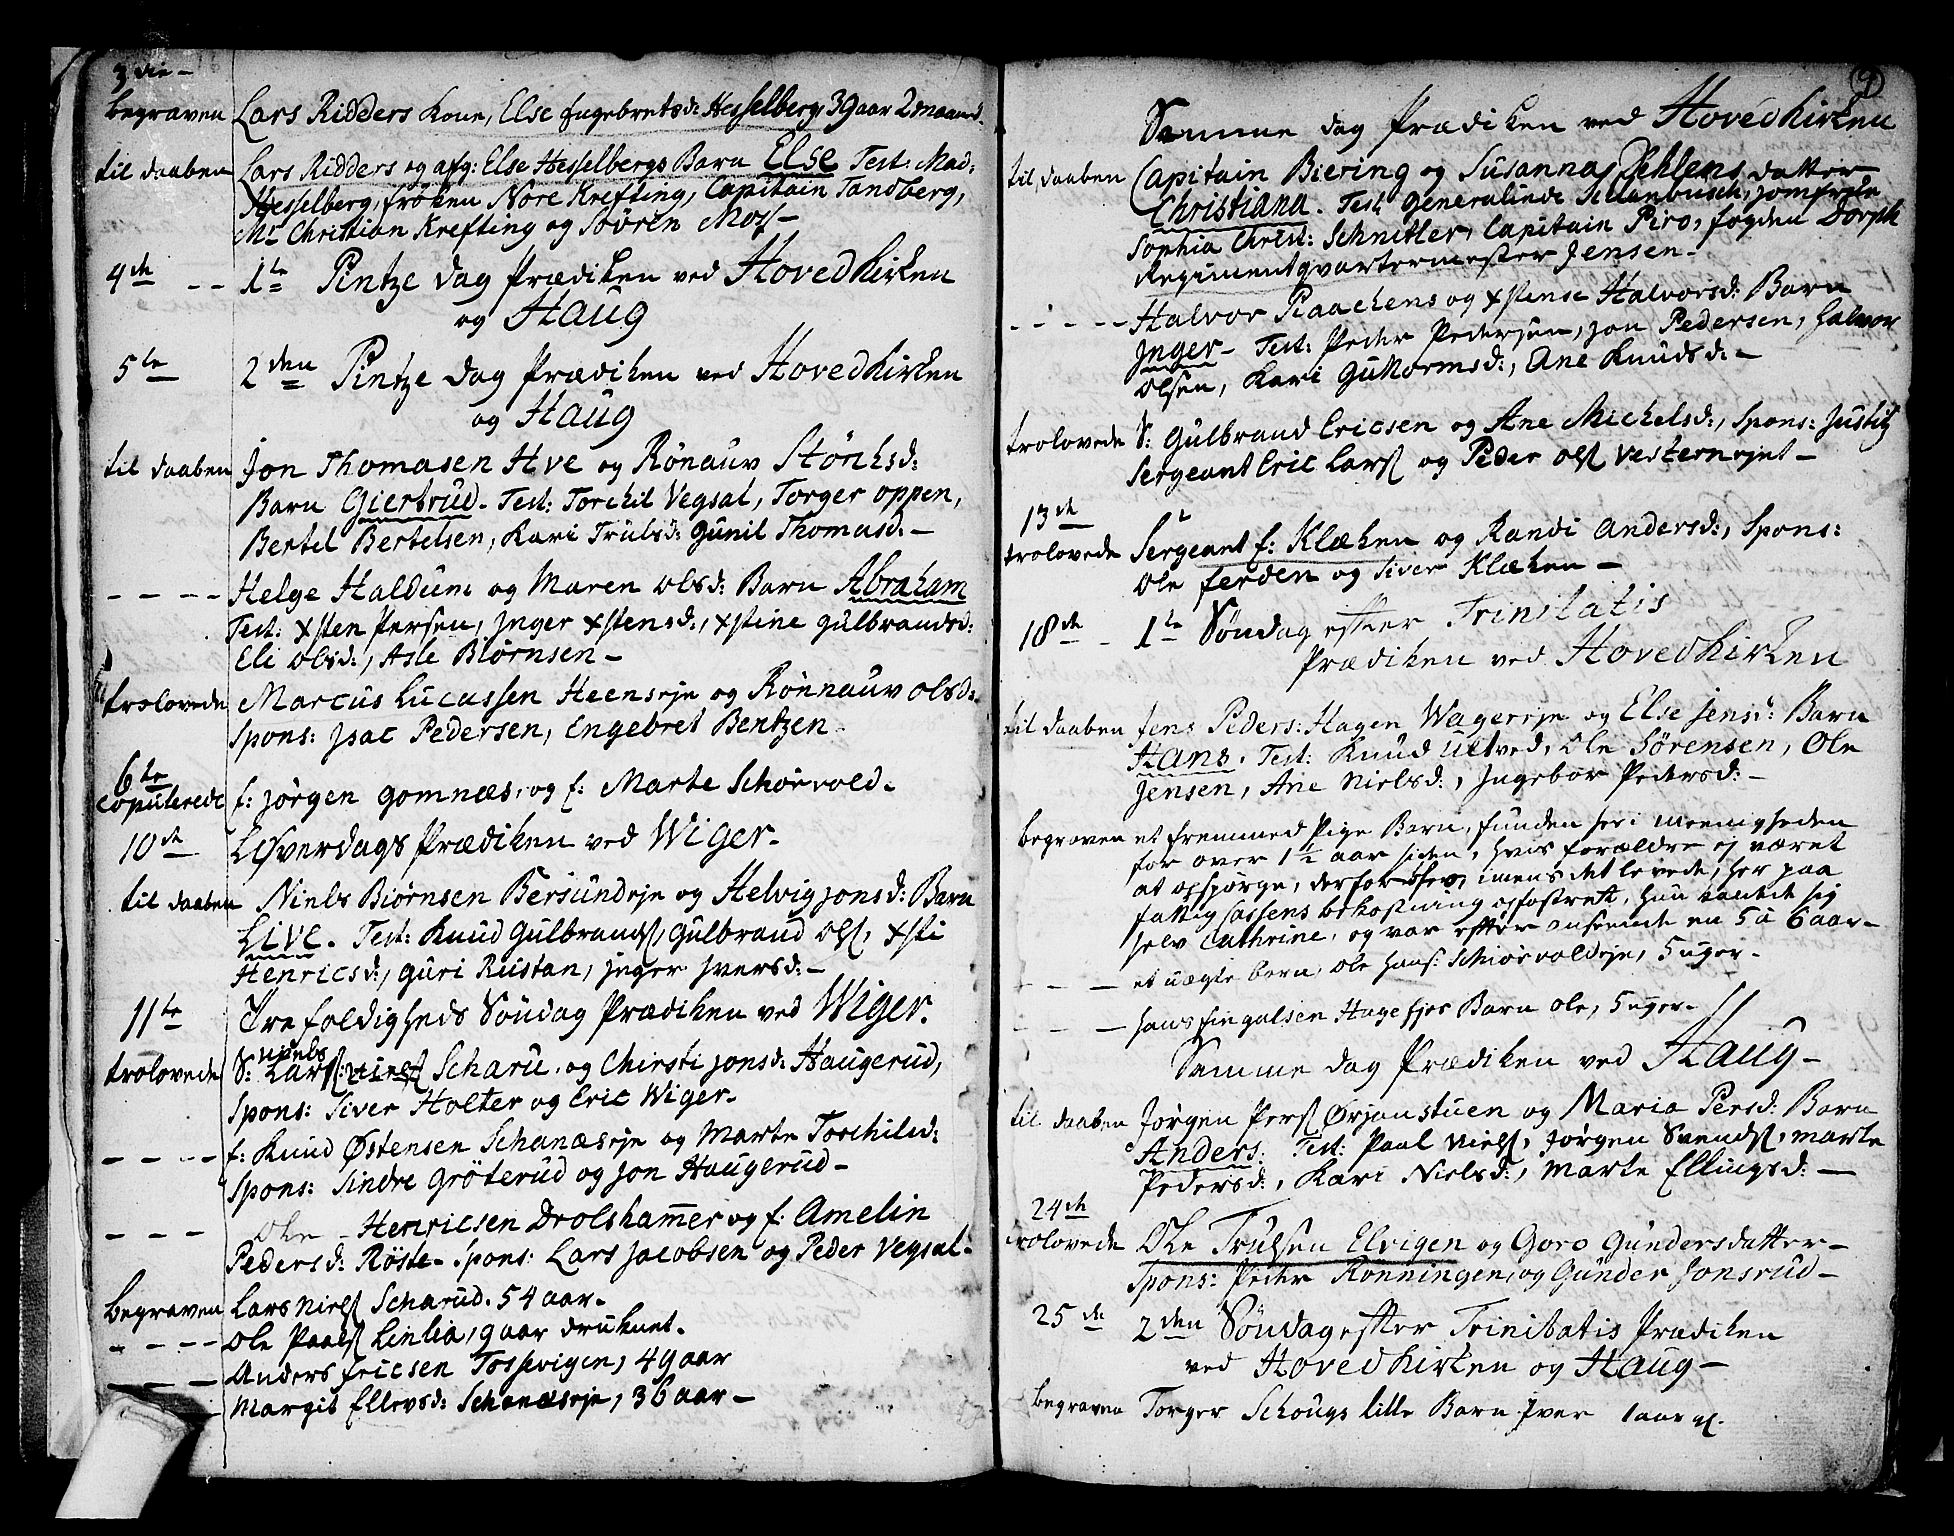 3die -
begraven Lars Ridders Kone, Else Engebretsd: Hesselberg 39 aar 2 maand.
til daaben Lars Ridders og afg: Else Hesselbergs Barn Else Test: Mad:
Hesselberg, frøken Nore Krefting, Capitain Tandberg,
Mr Christian Krefting og Søvren Moss -
4de - - 1te Pintze dag Prædiken ved Hovedkirken
og Haug
5te 2den Pintze dag Prædiken ved Hovedkirken
og Haug
til daaben Jon Thomasen Hve og Rønauv
Barn Giertrud - Test: Torchil Vegsal, Torger oppen,
Bertel Bertelsen, Kari Trulsd: Gunil Thomasd: -
- - - - Helge Haldum og Maren olsd: Barn Abraham
Test: xsten Persen, Inger xstensd:, xstine gulbrandsd:
Eli olsd:, Asle Biørnsen -
trolovede Marcus Lucassen Heenseje og Rønnauv olsd:
Spons: Isac Pedersen, Engebret Bentzen
6te
copulerede f: Jørgen gomnæs, og f: Marte Schørvold -
10de Løverdags Prædiken ved Wiger -
til daaben Niels Biørnsen Bersundeje og Helvig jonsd: Barn
Live. Test: Knud Gulbrands, Gulbrand ols, xsti
Henricsd:, guri Rustan, Inger Iversd: -
11te Trefoldigheds Søndag Prædiken ved Wiger.
Niels
trolovede S: Lars: Scharu, og Chirsti jonsd: Haugerud,
Spons: Siver Holter og Eric Wiger -
- - - - f: Knud Østensen Schanæseje og Marte Torchilsd:
Spons: Sindre Grøterud og Jon Haugerud -
- - - Ole - Henricsen Drolshammer og f: Amelin
Pedersd: Røste - Spons: Lars Jacobsen og Peder Vegsal -
begraven Lars Niels Scharud. 54 aar -
- - - - Ole Paals Linlia, 9 aar druknet.
- - - Anders Ericsen Tossevigen, 49 aar
Margit Ellevsd: Schanæseje, 36 aar -
9
Samme dag Prædiken ved Hovedkirken
til daaben Capitain Biering og Susanna datter
Christiana. Test: Generalinde jomfrue
Sophia Christ: Schnitler, Capitain Piro, fogden Dorph
Regimentqvartermester Jensen -
- - - - - Halvor Raachens og xstense Halvorsd: Barn
Inger - Test: Peder Pedersen, Jon Pedersen, Halvor
olsen, Kari Guttormsd:, Ane Knudsd: -
trolovede S: Gulbrand Ericsen og Ane Michelsd:, Spons: Justitz
Sergeant Eric Lars og Peder ols
13de
trolovede Sergeant f: Klæken og Randi Andersd:, Spons:
Ole ferden og Siver Klæken -
18de - 1te Søndag efter Trinitatis
Prædiken ved Hovedkirken
til daaben Jens Peders: Hagen Wagereje og Else Jensd: Barn
Hans. Test: Knud Ultved, Ole Sørensen, Ole
Jensen, Ane Nielsd:, Ingebor Pedersd: -
begraven et fremmed Pige Barn, funden her i meenigheden
for over 1 1/2 aar siden, hvis forældre ej været
at opspørge, derfor blev, imens det levede, her paa
fattig Cassens bekostning opfostret, hun kaldte sig
selv Cathrine, og var efter anseende en 5 a 6 aar -
- - - et uægte barn, Ole Hans: Schiørvoldeje, 5 uger -
- - - Hans fingalsen Hagefjer Barn Ole, 5 uger -
Samme dag Prædiken ved Haug -
til daaben Jørgen Pers Ørjanstuen og Maria Persd: Barn
Anders. Test: Paal Niels, Jørgen Svends, Marte
Pedersd:, Kari Nielsd:, Marte Ellingsd: -
24de
trolovede Ole Trulsen Elvigen og Goro Gundersdatter -
Spons: Peder Rønningen, og Gunder Jonsrud -
25de 2den Søndag efter Trinitatis Prædiken
ved Hovedkirken og Haug -
begraven Torger Schougs lille Barn Iver 1 aar gl.